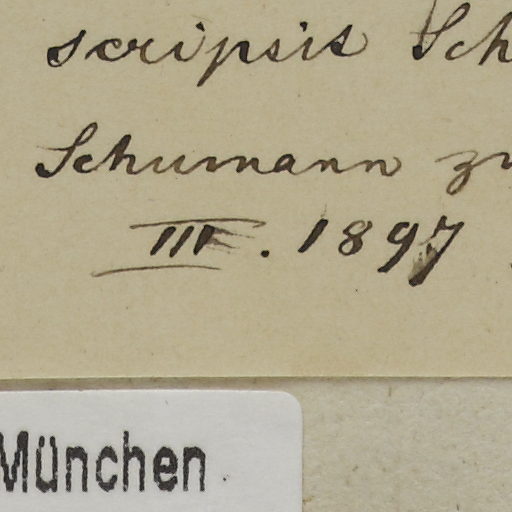 scripsit Sch
Schumann zu
III. 1897
München